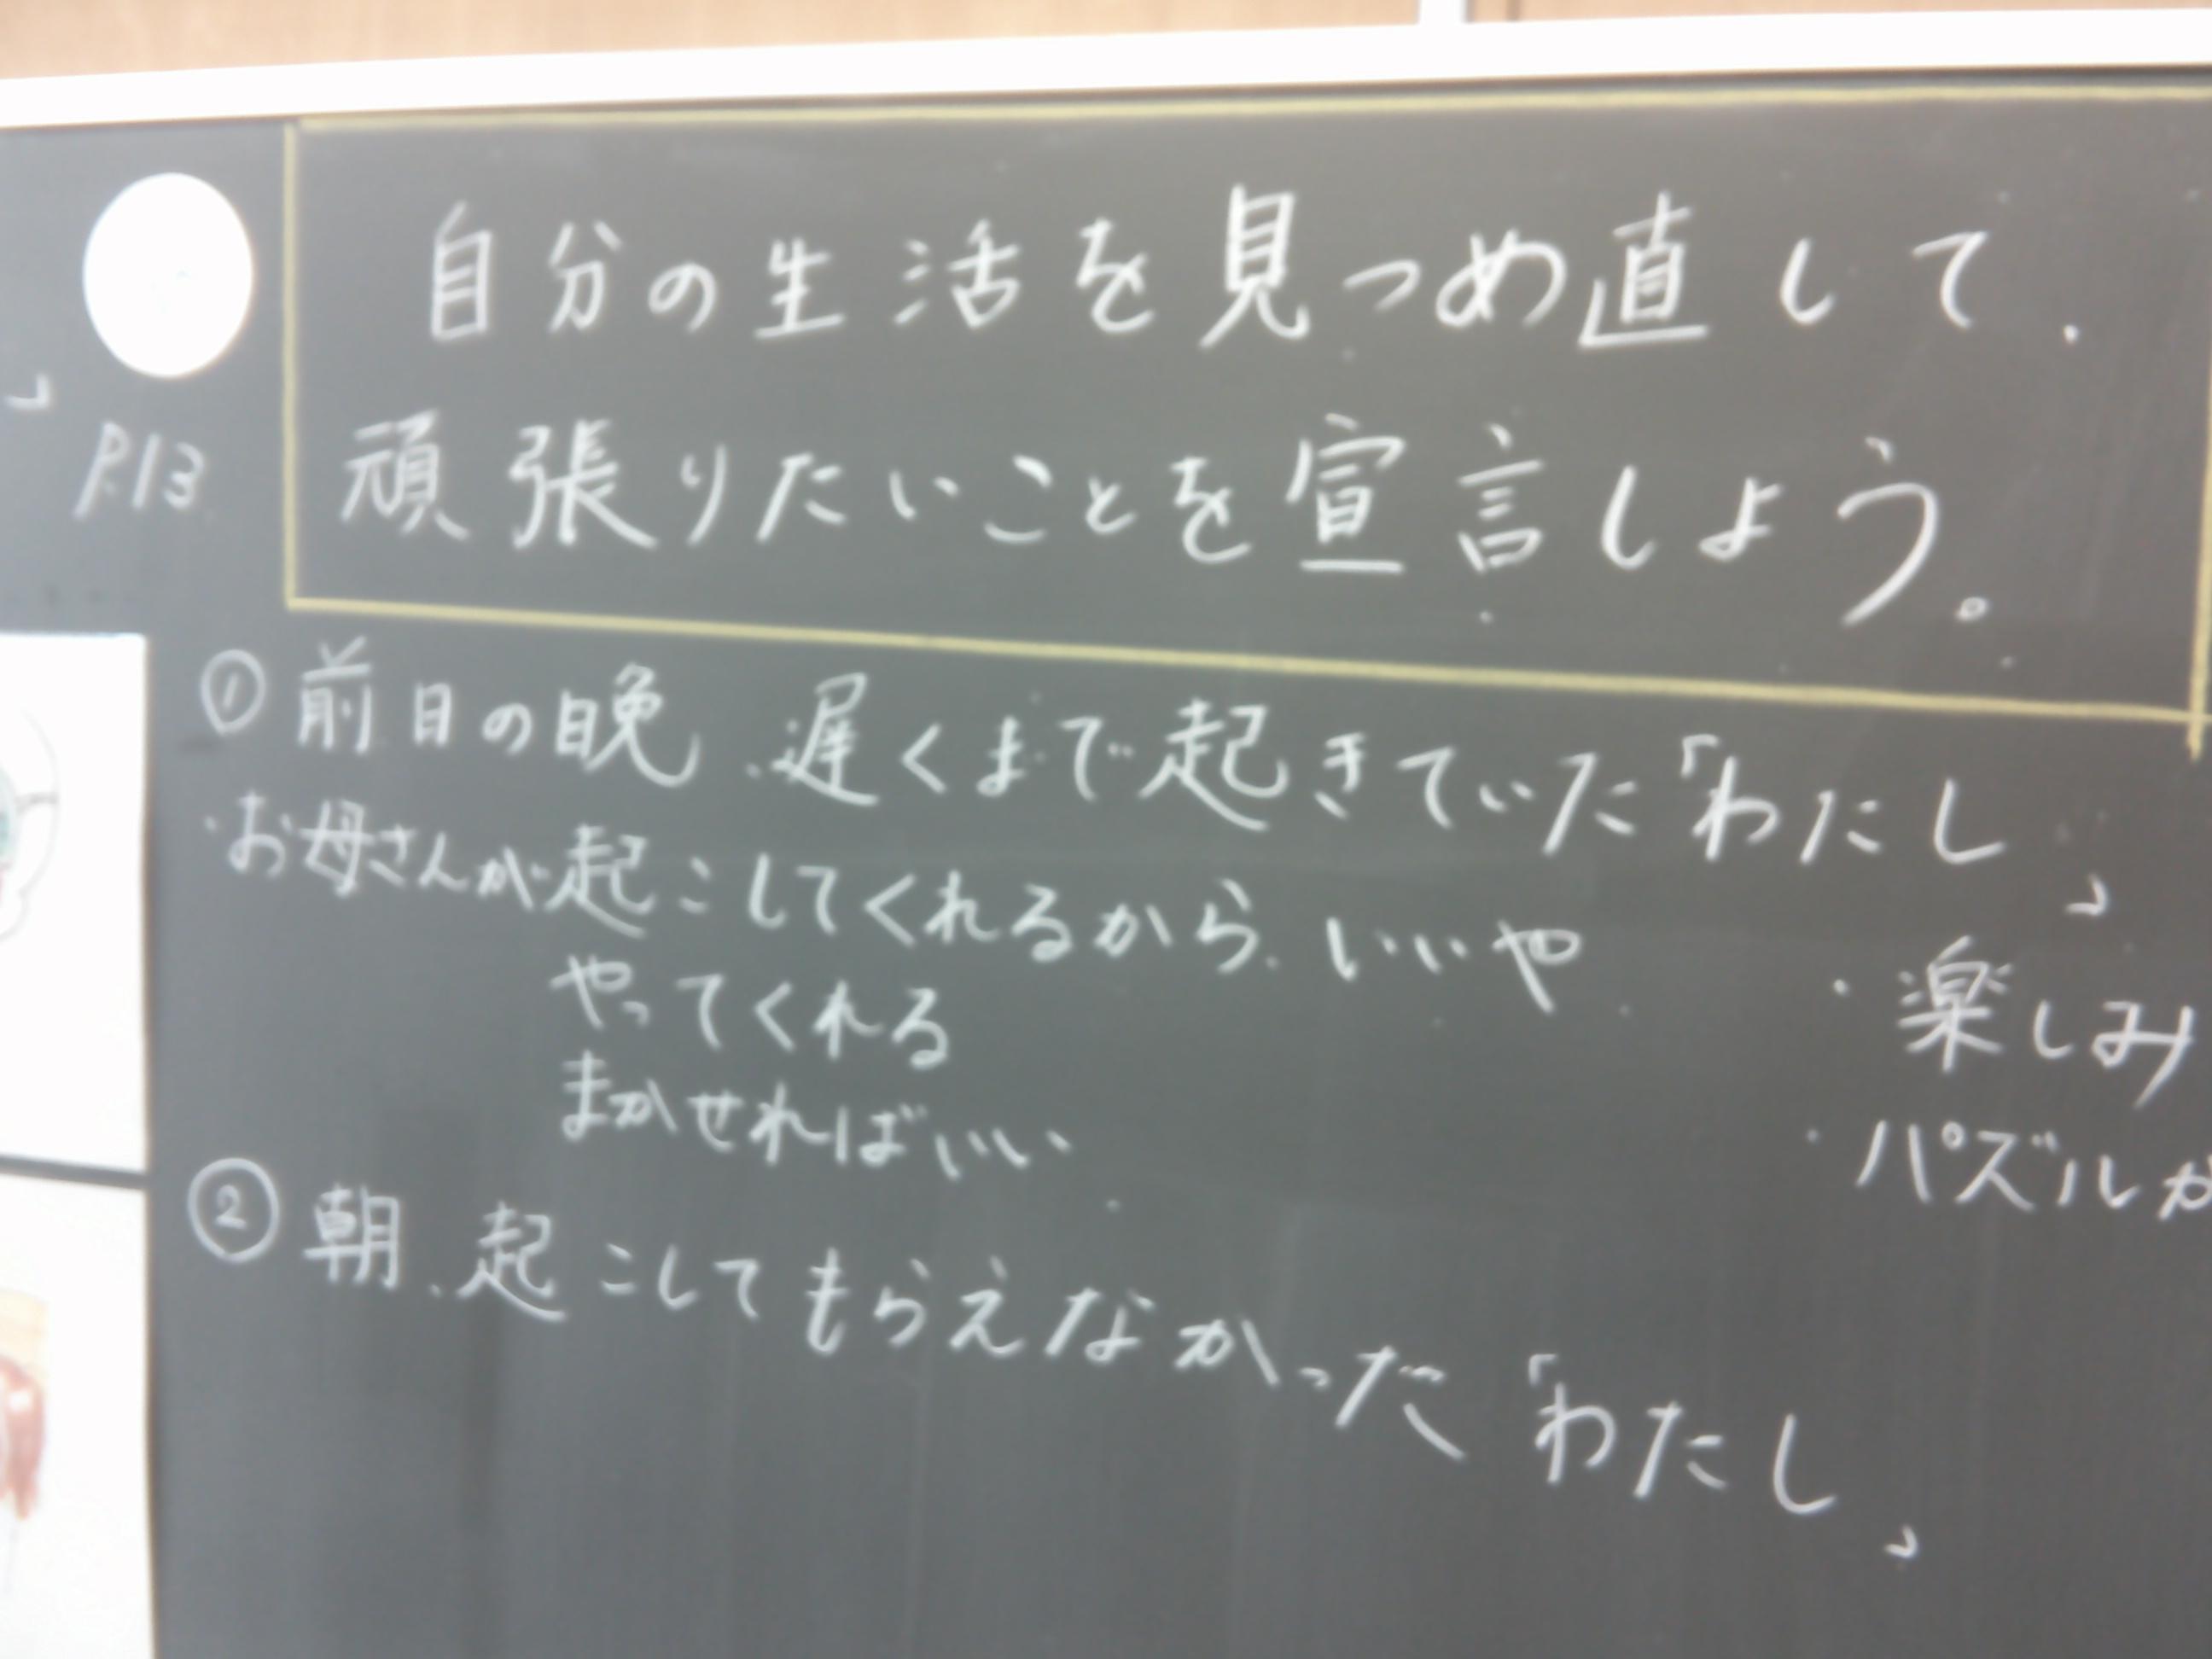 」
P.13
自分の生活を見つめ直して、
頑張りたいことを宣言しよう。
① 前日の晩、遅くまで起きていた「わたし」
・お母さんが起こしてくれるから、いいや
やってくれる
まかせればいい
・楽しみ
・パズルが
② 朝、起こしてもらえなかった「わたし」